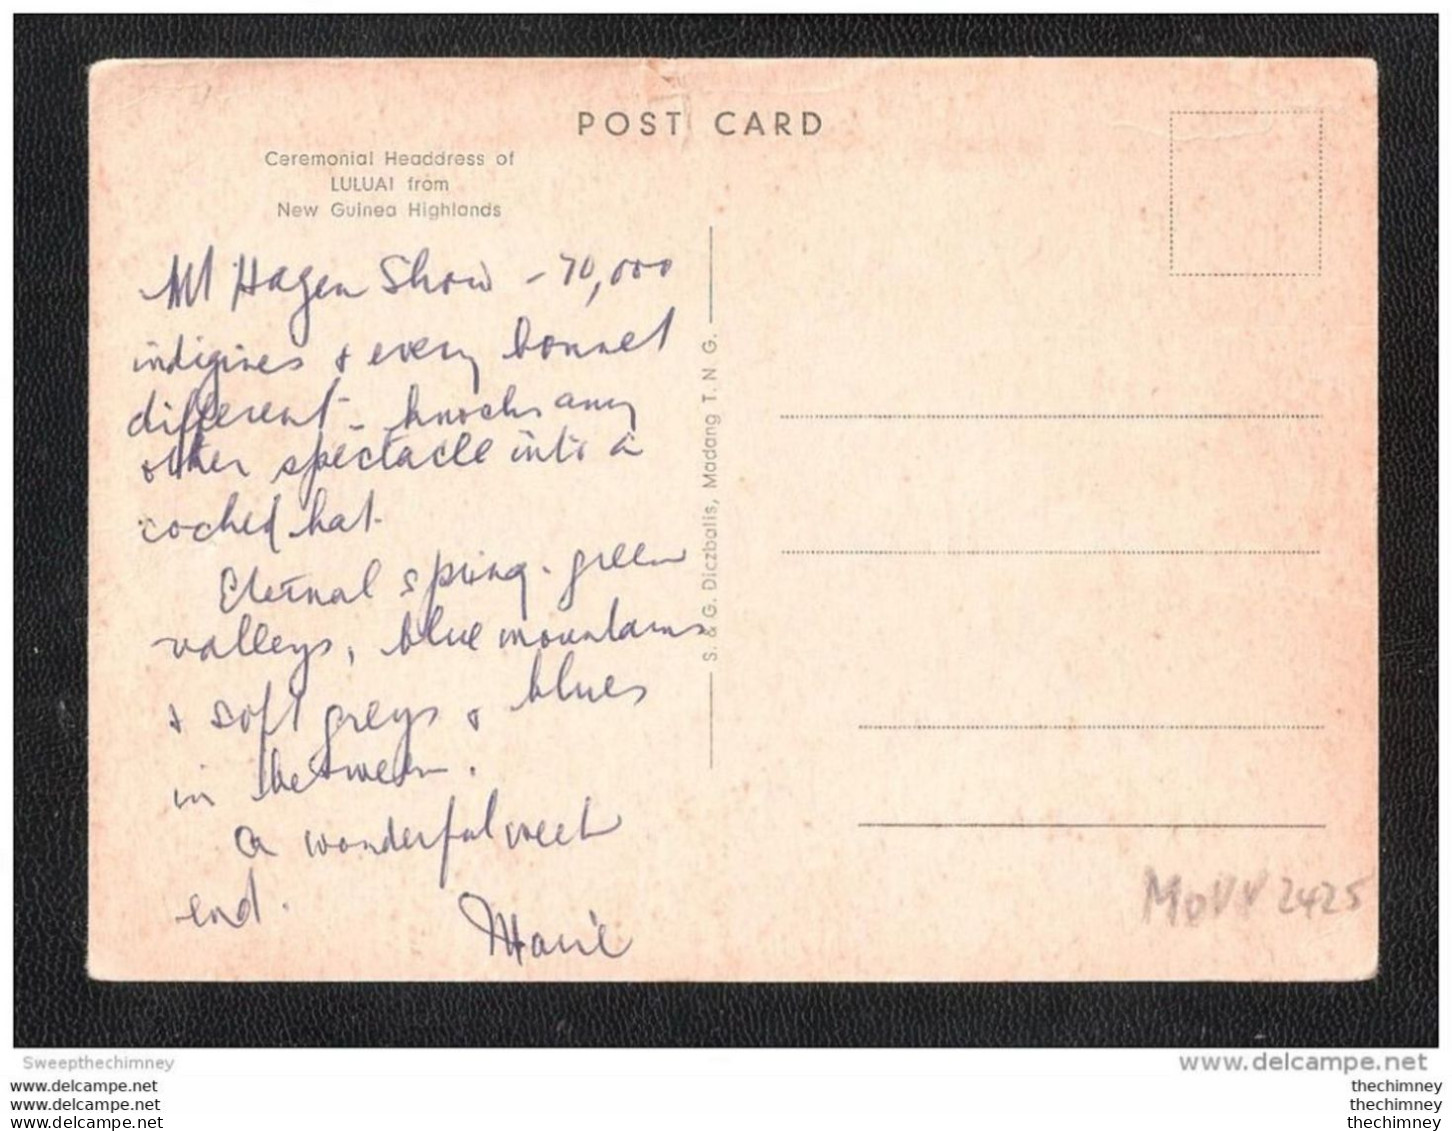 POST CARD
Ceremonial Headdress of
LULUAI from
New Guinea Highlands
Mt Hagen Show - 70,000
indigines & every bonnet
different - knocks any
other spectacle into a
cocked hat.
Eternal spring - green
valleys, blue mountains
& soft greys & blues
in between.
A wonderful week
end.
Marie
S. & G. Diczbalis, Madang T. N. G.
2425
Sweepthechimney
www.delcampe.net
www.delcampe.net
www.delcampe.net
www.delcampe.net
thechimney
thechimney
thechimney